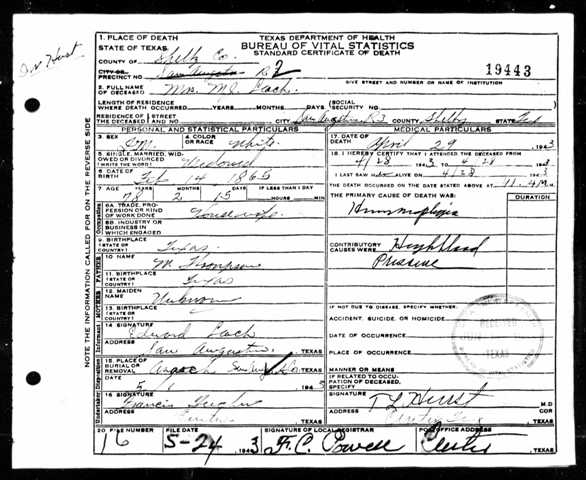 TEXAS DEPARTMENT OF HEALTH
BUREAU OF VITAL STATISTICS
STANDARD CERTIFICATE OF DEATH
19443
1. PLACE OF DEATH
STATE OF TEXAS
COUNTY OF Shelby Co.
CITY OR PRECINCT NO. San Augustine R2
GIVE STREET AND NUMBER OR NAME OF INSTITUTION
2. FULL NAME OF DECEASED Mrs. M.J.
LENGTH OF RESIDENCE WHERE DEATH OCCURRED YEARS MONTHS DAYS
(SOCIAL SECURITY NO.
RESIDENCE OF THE DECEASED STREET AND NO. CITY San Augustine R2 COUNTY Shelby
PERSONAL AND STATISTICAL PARTICULARS
3. SEX
4. COLOR OR RACE White
5. SINGLE, MARRIED, WIDOWED OR DIVORCED (WRITE THE WORD) Widowed
6. DATE OF BIRTH Feb 14 1865
7. AGE YEARS MONTHS DAYS IF LESS THAN 1 DAY
78 2 15 HOURS MIN
8A. TRADE, PROFESSION OR KIND OF WORK DONE
8B. INDUSTRY OR BUSINESS IN WHICH ENGAGED
9. BIRTHPLACE (STATE OR COUNTRY) Texas
10 NAME M Thompson
11. BIRTHPLACE (STATE OR COUNTRY) Texas
12. MAIDEN NAME Unknown
13. BIRTHPLACE (STATE OR COUNTRY)
14 SIGNATURE Edward
ADDRESS San Augustine TEXAS
15. PLACE OF BURIAL OR REMOVAL TEXAS
DATE 5/1 194
16 SIGNATURE Francis
ADDRESS TEXAS
MEDICAL PARTICULARS
17. DATE OF DEATH April 29 1943
18 I HEREBY CERTIFY THAT I ATTENDED THE DECEASED FROM
4/28 1943 TO 4-28 1943
I LAST SAW ALIVE ON 4/28 1943
THE DEATH OCCURRED ON THE DATE STATED ABOVE AT 11. M
THE PRIMARY CAUSE OF DEATH WAS: DURATION
CONTRIBUTORY CAUSES WERE: High Blood
Pressure
IF NOT DUE TO DISEASE, SPECIFY WHETHER:
ACCIDENT, SUICIDE, OR HOMICIDE
DATE OF OCCURRENCE
PLACE OF OCCURRENCE
MANNER OR MEANS
IF RELATED TO OCCUPATION OF DECEASED, SPECIFY
SIGNATURE T L Hurst M.D COR
ADDRESS TEXAS
RECEIVED
TEXAS
20 FILE NUMBER FILE DATE SIGNATURE OF LOCAL REGISTRAR POST OFFICE ADDRESS
16 5-24 1943 F. C. Powell Center TEXAS
NOTE THE INFORMATION CALLED FOR ON THE REVERSE SIDE
Occupation
FATHER
MOTHER
Informant
Disposition
Undertaker
Hurst